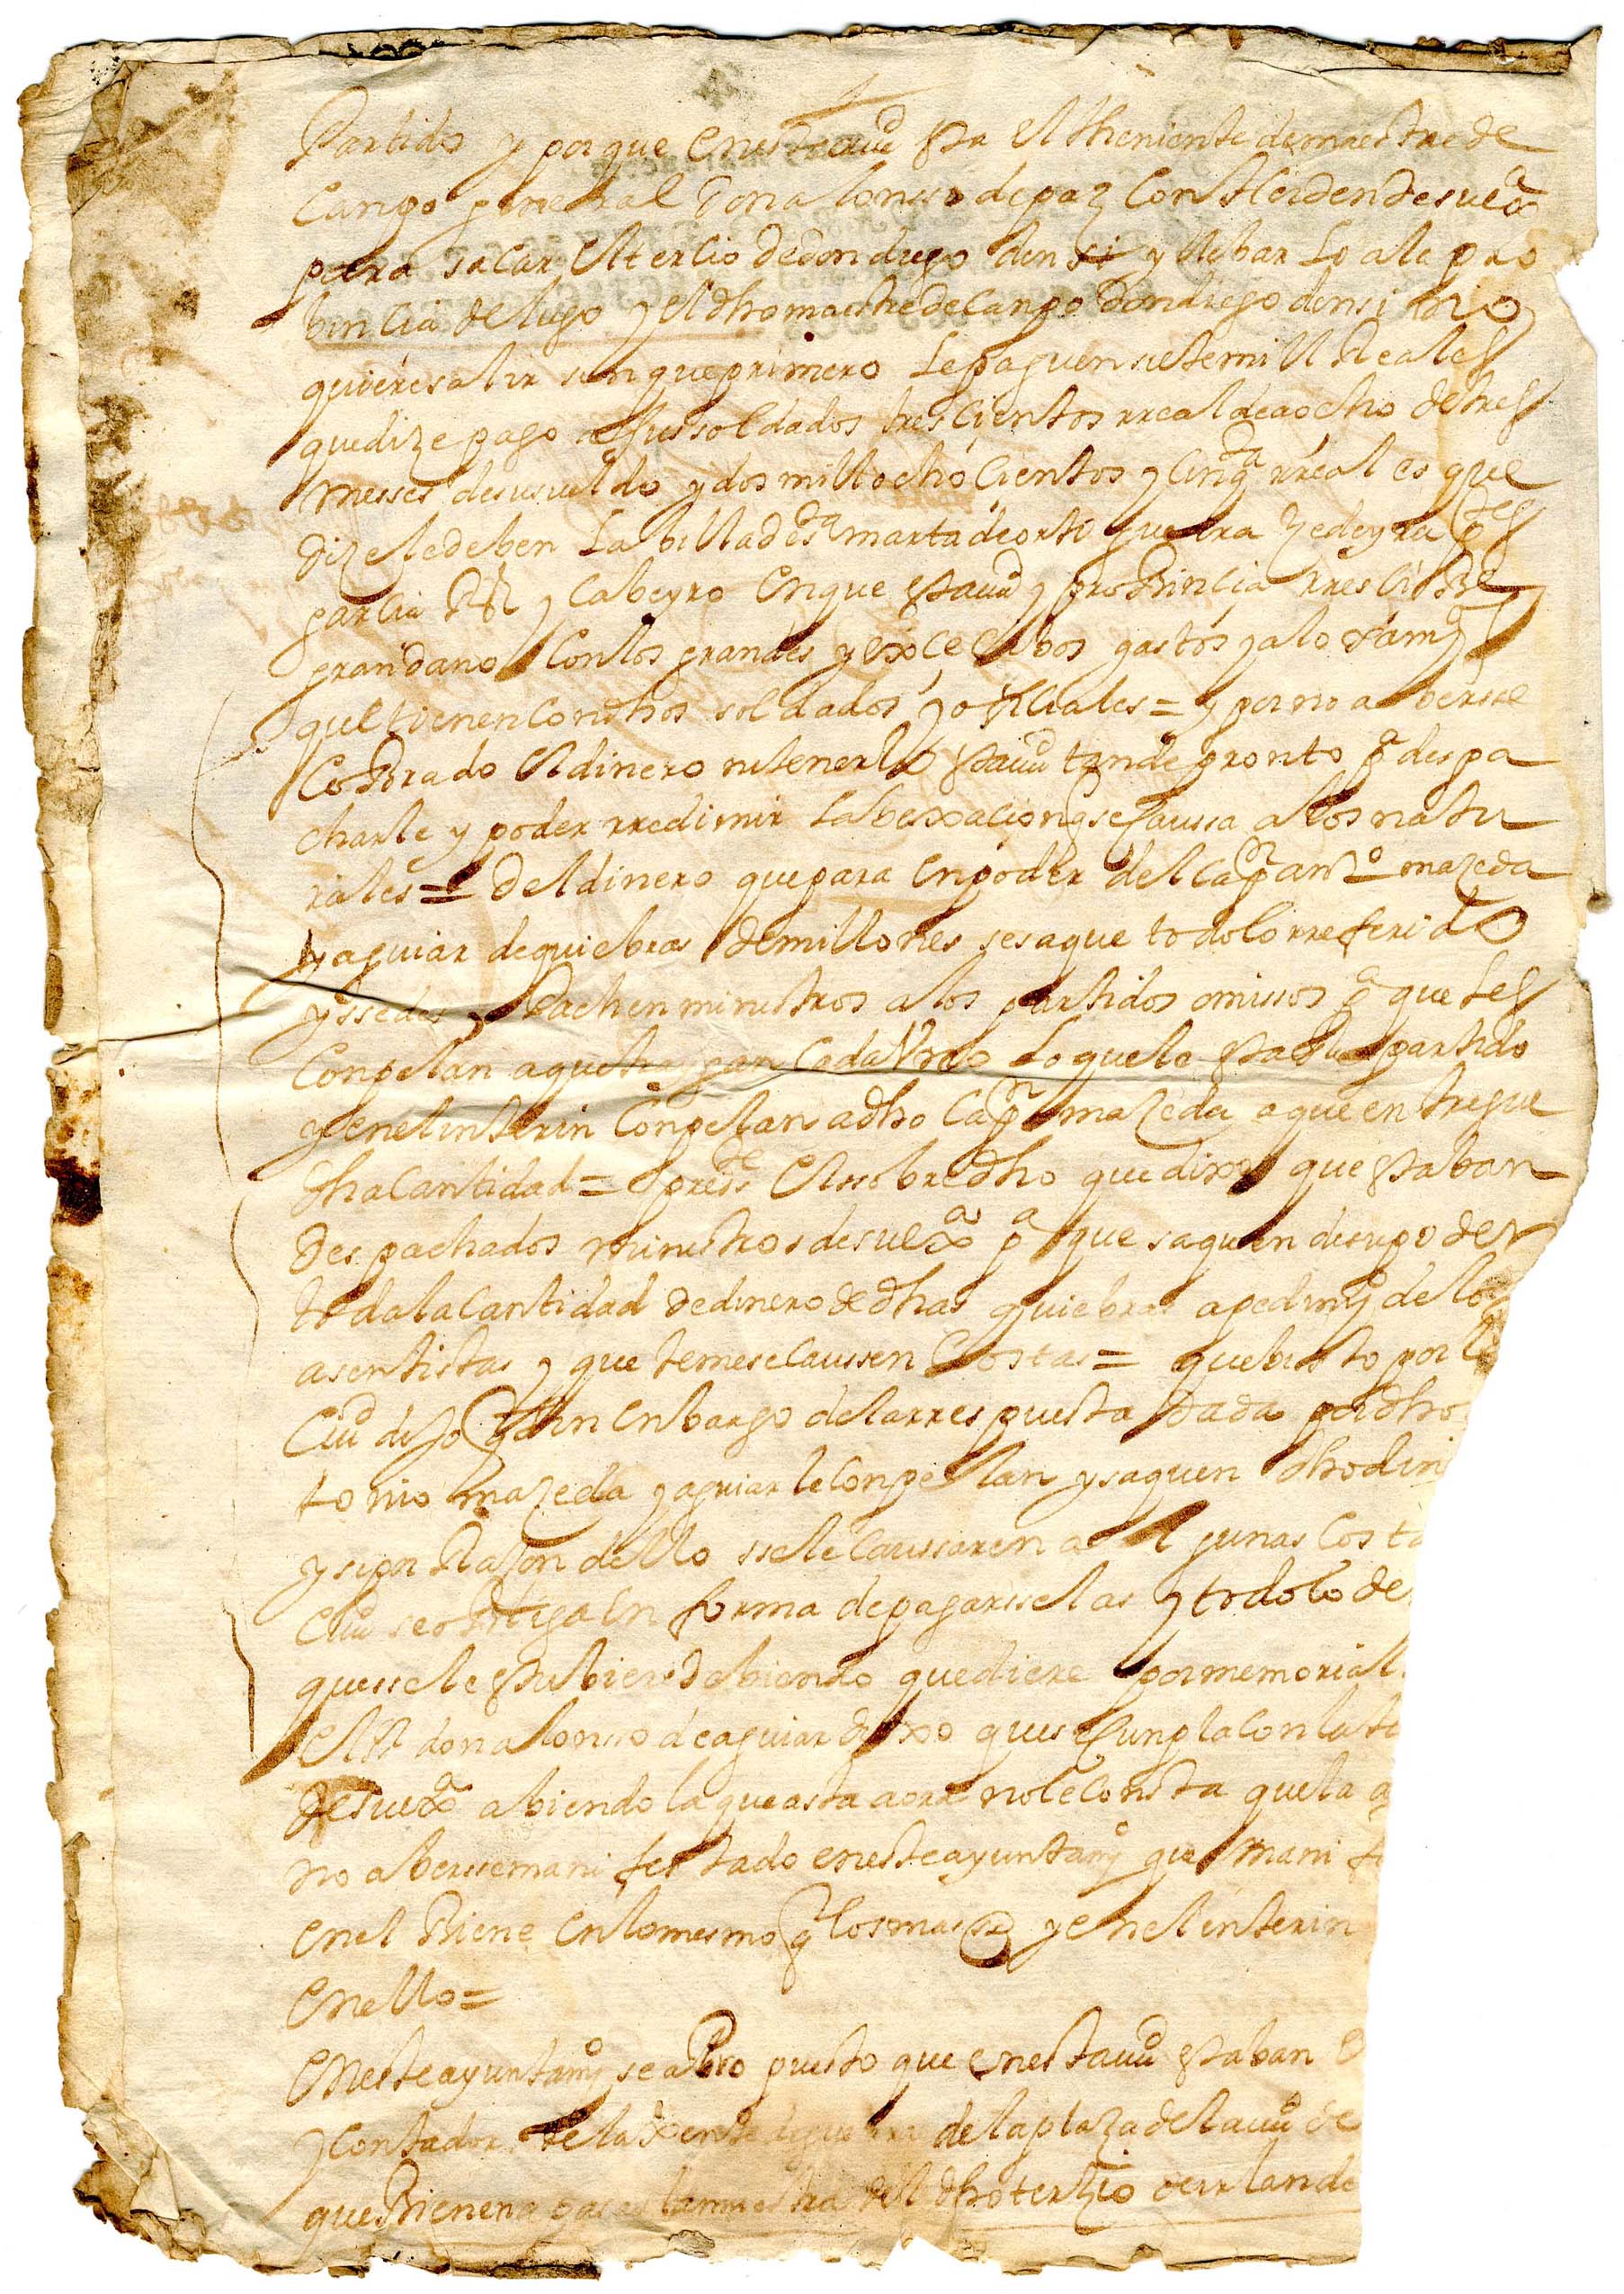 Partidos y porque en esta ciud esta el theniente de maestre de
Canpo general Don alonsso de paz Con el orden de su exa
para sacar el tercio de don diego densi y llebar lo a la pro
bincia de lugo y el dho maestre de Canpo Don diego densi no
quiere salir sin que primero le paguen siete mill Reales
que dize pago a sus soldados trescientos rreal de a ocho de tres
messes de su sueldo y dos mill ochocientos y cinqta rreales que
dize le deben la billa de sta marta de ortiguera zedeyra
garcia Rz y Cabeyro en que esta ciud y probincia rrescibe
gran dano Con los grandes y excecibos gastos y aloxamo
que tienen con dhos soldados y oficiales = y por no aberse
Cobrado el dinero ni tenerlo esta ciud tan de pronto pa despa
charle y poder rredimir la bexacion q se caussa a los natu
rales = del dinero que para en poder del Capn anto mazeda
y aguiar de quiebras de millones se saque todo lo rreferido
y sse des pachen ministros a los partidos omissos pa que les
Conpelan a que traygan cada Uno lo que le esta rrepartido
y en el interin Conpelan a dho Capn mazeda a que entregue
dha Cantidad = pressте el ssobredho que dixo que estaban
despachados ministros de su exa pa que saquen de su poder
toda la Cantidad de dinero de dhas quiebras a pedimo de los
asentistas y que teme se caussen Costas = que bisto por la
Ciud dijo q sin enbargo de la rrespuesta dada por dho
tonio mazeda y aguiar le Conpelan y saquen dho din
y si por Razon dello sse le caussaren algunas Costa
Ciud se obliga en forma de pagarsselas y todo lo de
que sse le estubiere debiendo que diere por memorial
el sr don alonsso de aguiar dixo que se Cunpla con la
de su exa abiendo la que asta aora no le Consta que la a
no aberse manifestado en este ayuntamo que mani
en el biene en lo mesmo q los mas ss y en el interin
en ello =
En este ayuntamo se a Propuesto que en esta ciud estaban
y Contador de la xente de guerra de la plaza de la ciud de
que bienen a pasar la muestra del dho terzio de yrlande